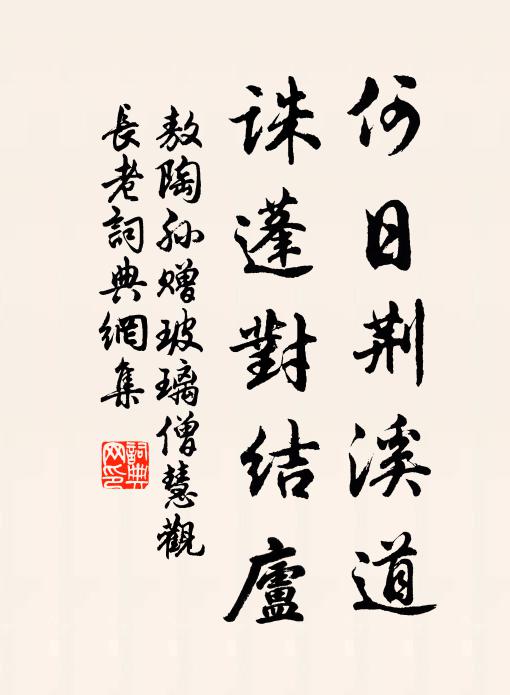 何日荆溪道
誅蓬對結廬
敖陶孙赠玻璃僧慧觀
長老詞典網集
詞典网印